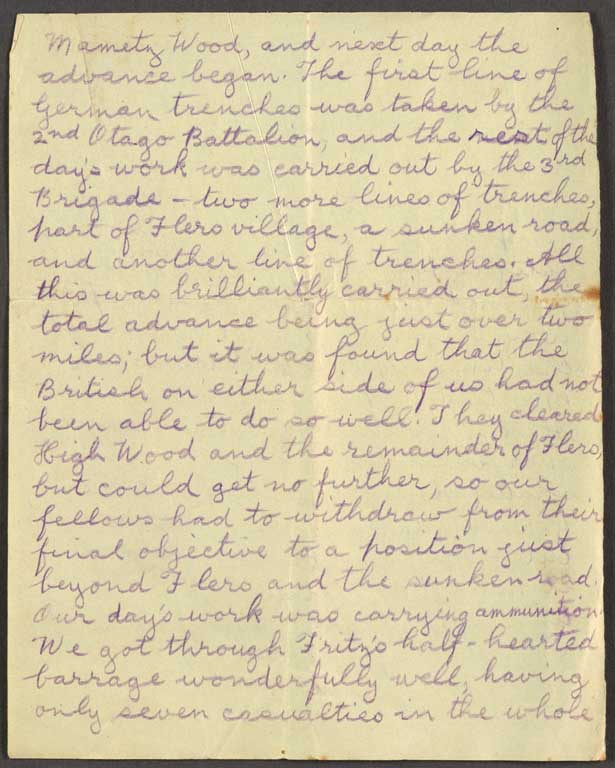 Mametz Wood, and next day the
advance began. The first line of
German trenches was taken by the
2nd Otago Battalion, and the rest of the
day's work was carried out by the 3rd
Brigade - two more lines of trenches,
part of Flers village, a sunken road,
and another line of trenches. All
this was brilliantly carried out, the
total advance being just over two
miles; but it was found that the
British on either side of us had not
been able to do so well. They cleared
High Wood and the remainder of Flers,
but could get no further, so our
fellows had to withdraw from their
final objective to a position just
beyond Flers and the sunken road.
Our day's work was carrying ammunition.
We got through Fritz's half-hearted
barrage wonderfully well, having
only seven casualties in the whole